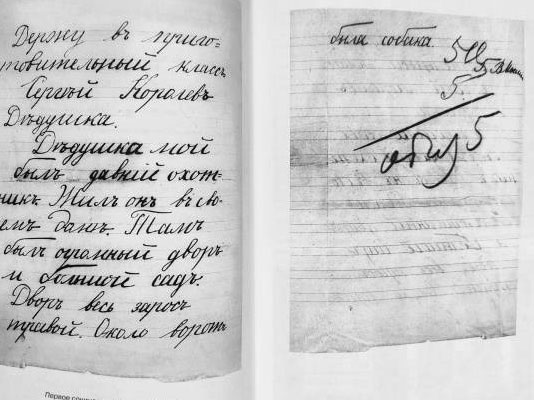 Держу въ приго=
товительный классъ
Сергѣй Королевъ
Дѣдушка.
Дѣдушка мой
былъ давній охот-
никъ Жилъ онъ въ сво-
емъ Тамъ
былъ огромный дворъ
и болшой садъ.
Дворъ весь заросъ
травой. Около воротъ
была собака.
5
5
5
Первое